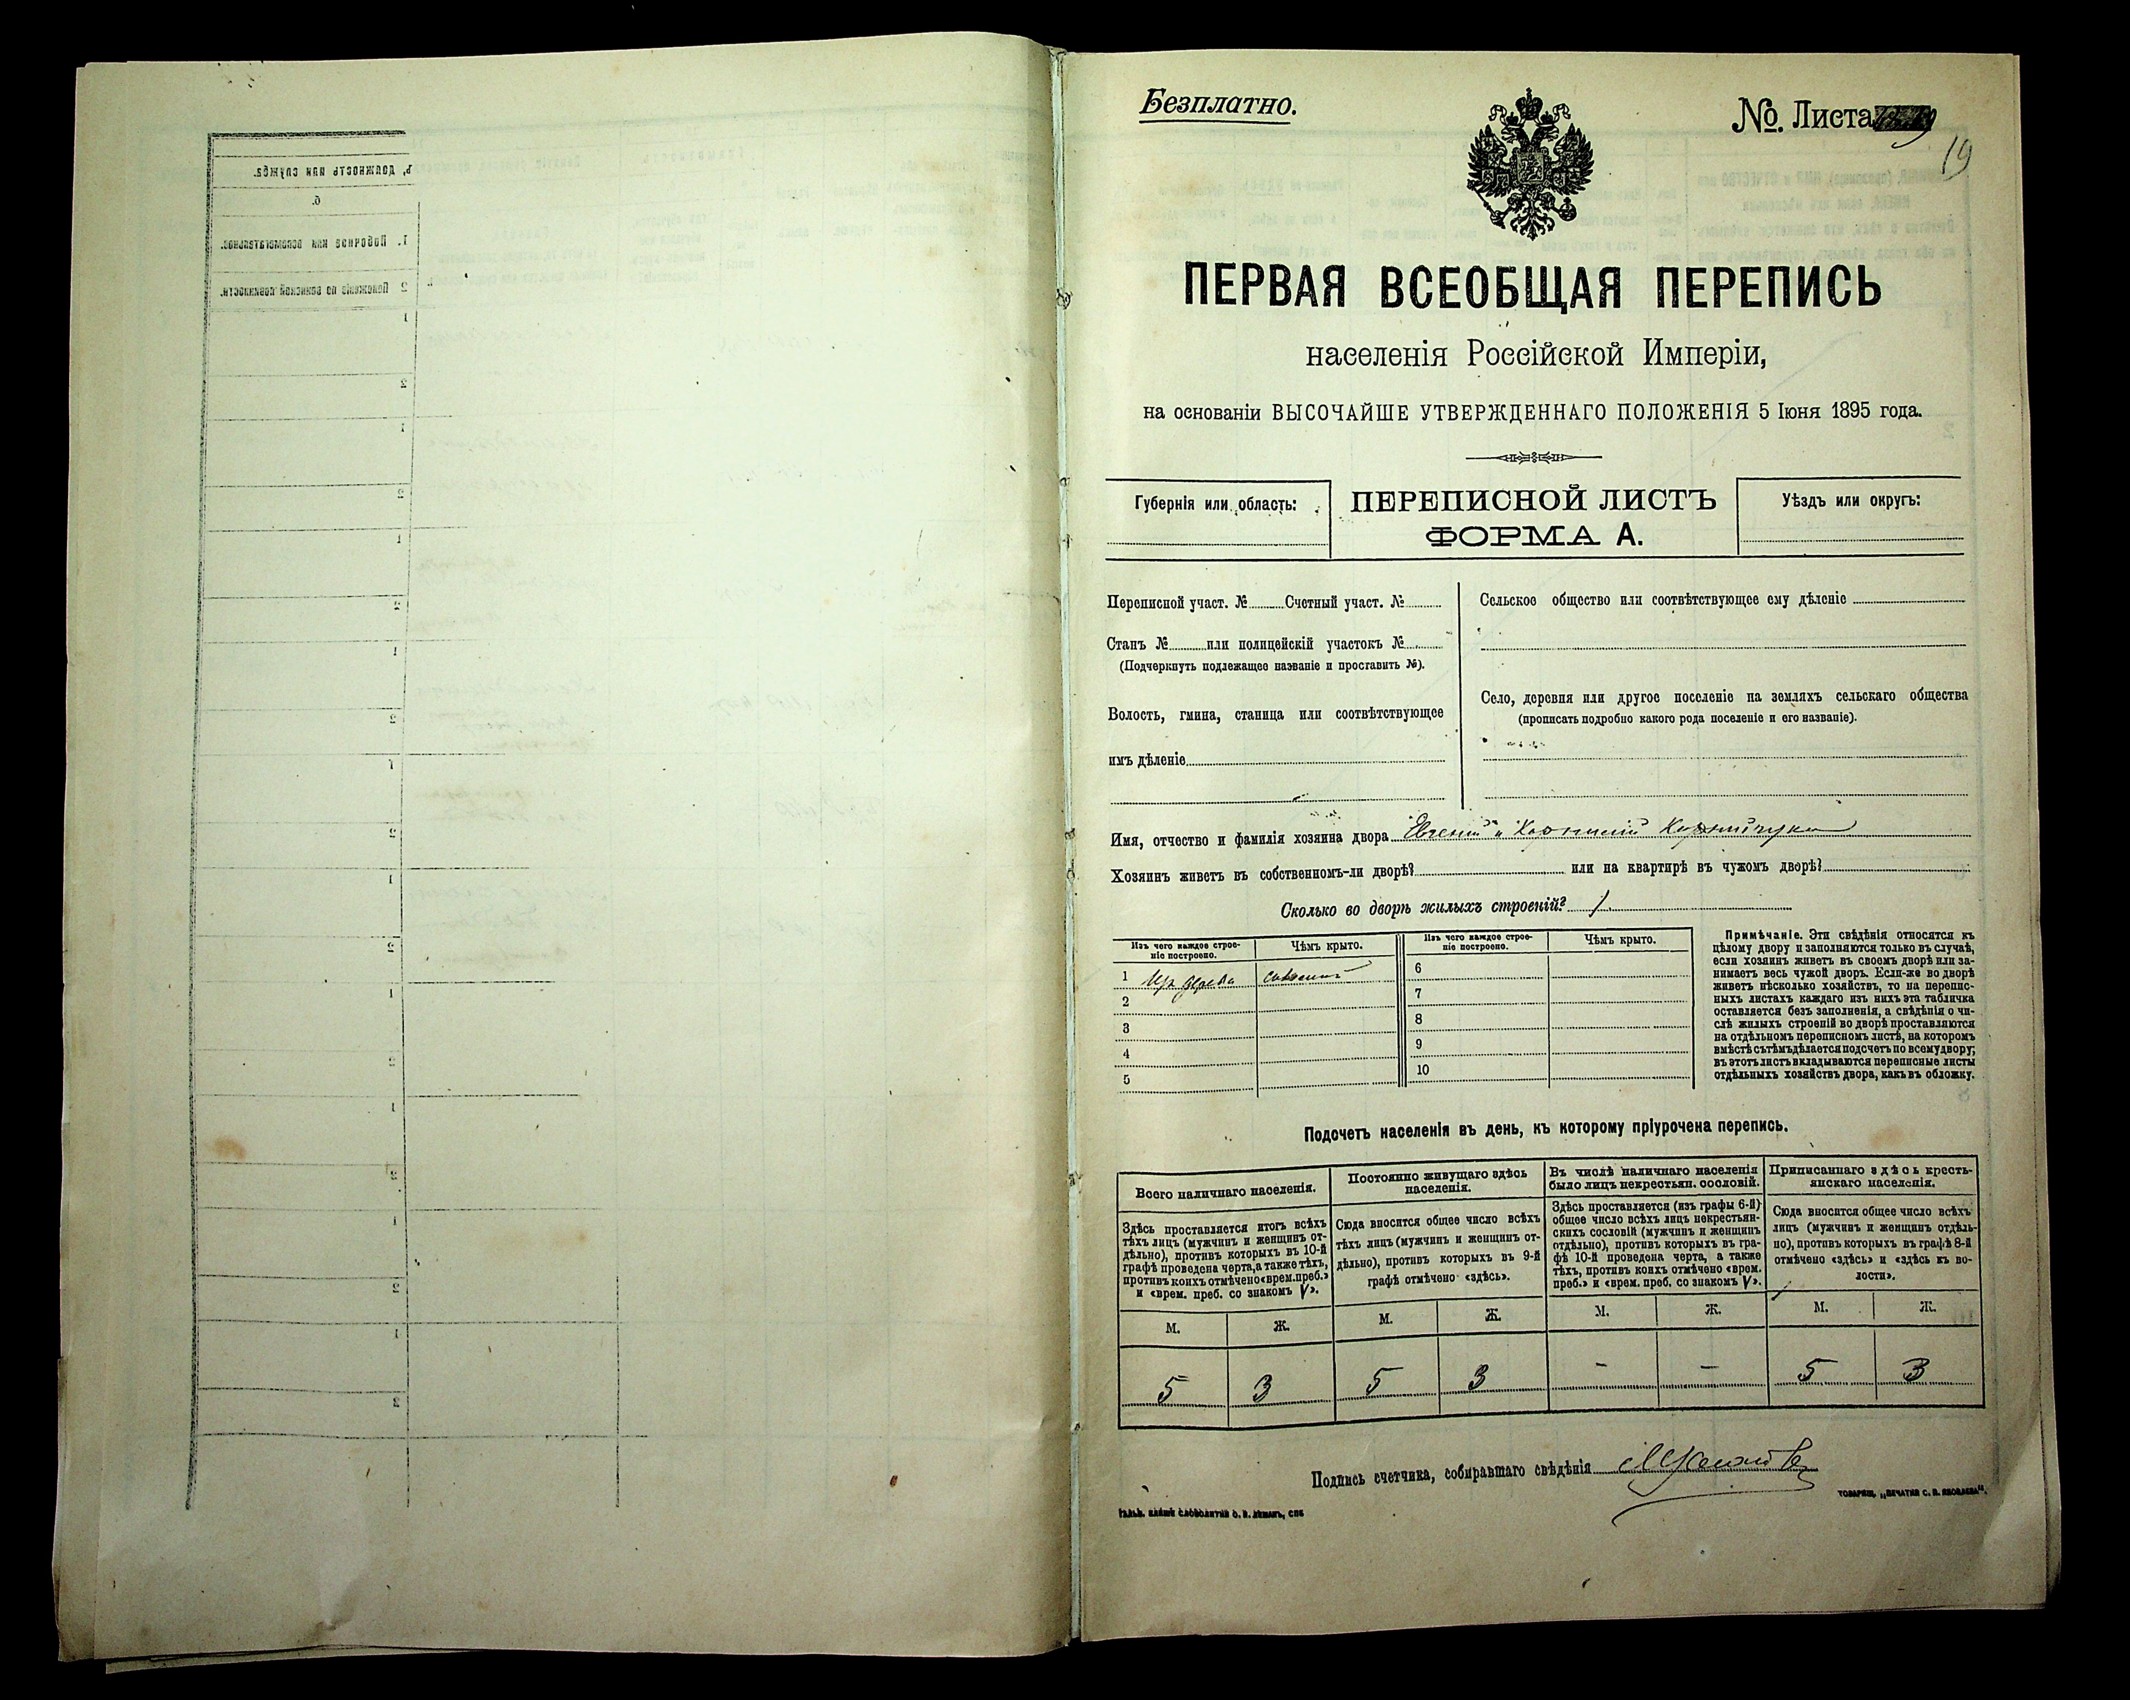 Безплатно.
№. Листа
19
ПЕРВАЯ ВСЕОБЩАЯ ПЕРЕПИСЬ
населенія Россійской Имперіи,
на основаніи ВЫСОЧАЙШЕ УТВЕРЖДЕННАГО ПОЛОЖЕНІЯ 5 Іюня 1895 года.
Губернія или область:
ПЕРЕПИСНОЙ ЛИСТЪ
ФОРМА А.
Уѣздъ или округъ:
Переписной участ. № Счетный участ. №
Станъ № или полицейскій участокъ №
(Подчеркнуть подлежащее названіе и проставить №).
Волость, гмина, станица или соотвѣтствующее
имъ дѣленіе
Сельское общество или соотвѣтствующее ему дѣленіе
Село, деревня или другое поселеніе на земляхъ сельскаго общества
(прописать подробно какого рода поселеніе и его названіе).
Имя, отчество и фамилія хозяина двора Евгеній и
Хозяинъ живетъ въ собственномъ-ли дворѣ? или на квартирѣ въ чужомъ дворѣ?
Сколько во дворѣ жилыхъ строеній? 1.
Изъ чего каждое строе-
ніе построено.
Чѣмъ крыто.
1 Изъ дерева
2
3
4
5
Изъ чего каждое строе-
ніе построено.
Чѣмъ крыто.
6
7
8
9
10
Примѣчаніе. Эти свѣдѣнія относятся къ
цѣлому двору и заполняются только въ случаѣ,
если хозяинъ живетъ въ своемъ дворѣ или за-
нимаетъ весь чужой дворъ. Если-же во дворѣ
живетъ нѣсколько хозяйствъ, то на перепис-
ныхъ листахъ каждаго изъ нихъ эта табличка
оставляется безъ заполненія, а свѣдѣнія о чи-
слѣ жилыхъ строеній во дворѣ проставляются
на отдѣльномъ переписномъ листѣ, на которомъ
вмѣстѣ съ тѣмъ дѣлается подсчетъ по всему двору;
въ этотъ листъ вкладываются переписные листы
отдѣльныхъ хозяйствъ двора, какъ въ обложку.
Подсчетъ населенія въ день, къ которому пріурочена перепись.
Всего наличнаго населенія.
Здѣсь проставляется итогъ всѣхъ
тѣхъ лицъ (мужчинъ и женщинъ от-
дѣльно), противъ которыхъ въ 10-й
графѣ проведена черта, а также тѣхъ,
противъ коихъ отмѣчено «врем. преб.»
и «врем. преб. со знакомъ V».
М. Ж.
5 3
Постоянно живущаго здѣсь
населенія.
Сюда вносится общее число всѣхъ
тѣхъ лицъ (мужчинъ и женщинъ от-
дѣльно), противъ которыхъ въ 9-й
графѣ отмѣчено «здѣсь».
М. Ж.
5 3
Въ числѣ наличнаго населенія
было лицъ некрестьян. сословій.
Здѣсь проставляется (изъ графы 6-й)
общее число всѣхъ лицъ некрестьян-
скихъ сословій (мужчинъ и женщинъ
отдѣльно), противъ которыхъ въ гра-
фѣ 10-й проведена черта, а также
тѣхъ, противъ коихъ отмѣчено «врем.
преб.» и «врем. преб. со знакомъ V».
М. Ж.
- -
Приписаннаго здѣсь кресть-
янскаго населенія.
Сюда вносится общее число всѣхъ
лицъ (мужчинъ и женщинъ отдѣль-
но), противъ которыхъ въ графѣ 8-й
отмѣчено «здѣсь» и «здѣсь къ во-
лости».
М. Ж.
5 3
Подпись счетчика, собиравшаго свѣдѣнія
ТОВАРИЩ. „ПЕЧАТНЯ С. П. ЯКОВЛЕВА“.
ГАЛЬВ. КЛИШЕ СЛОВОЛИТНИ О. И. ЛЕМАНЪ, СПБ
ъ, должность или служба.
б.
1. Побочное или вспомогательное.
2 Положеніе по воинской повинности.